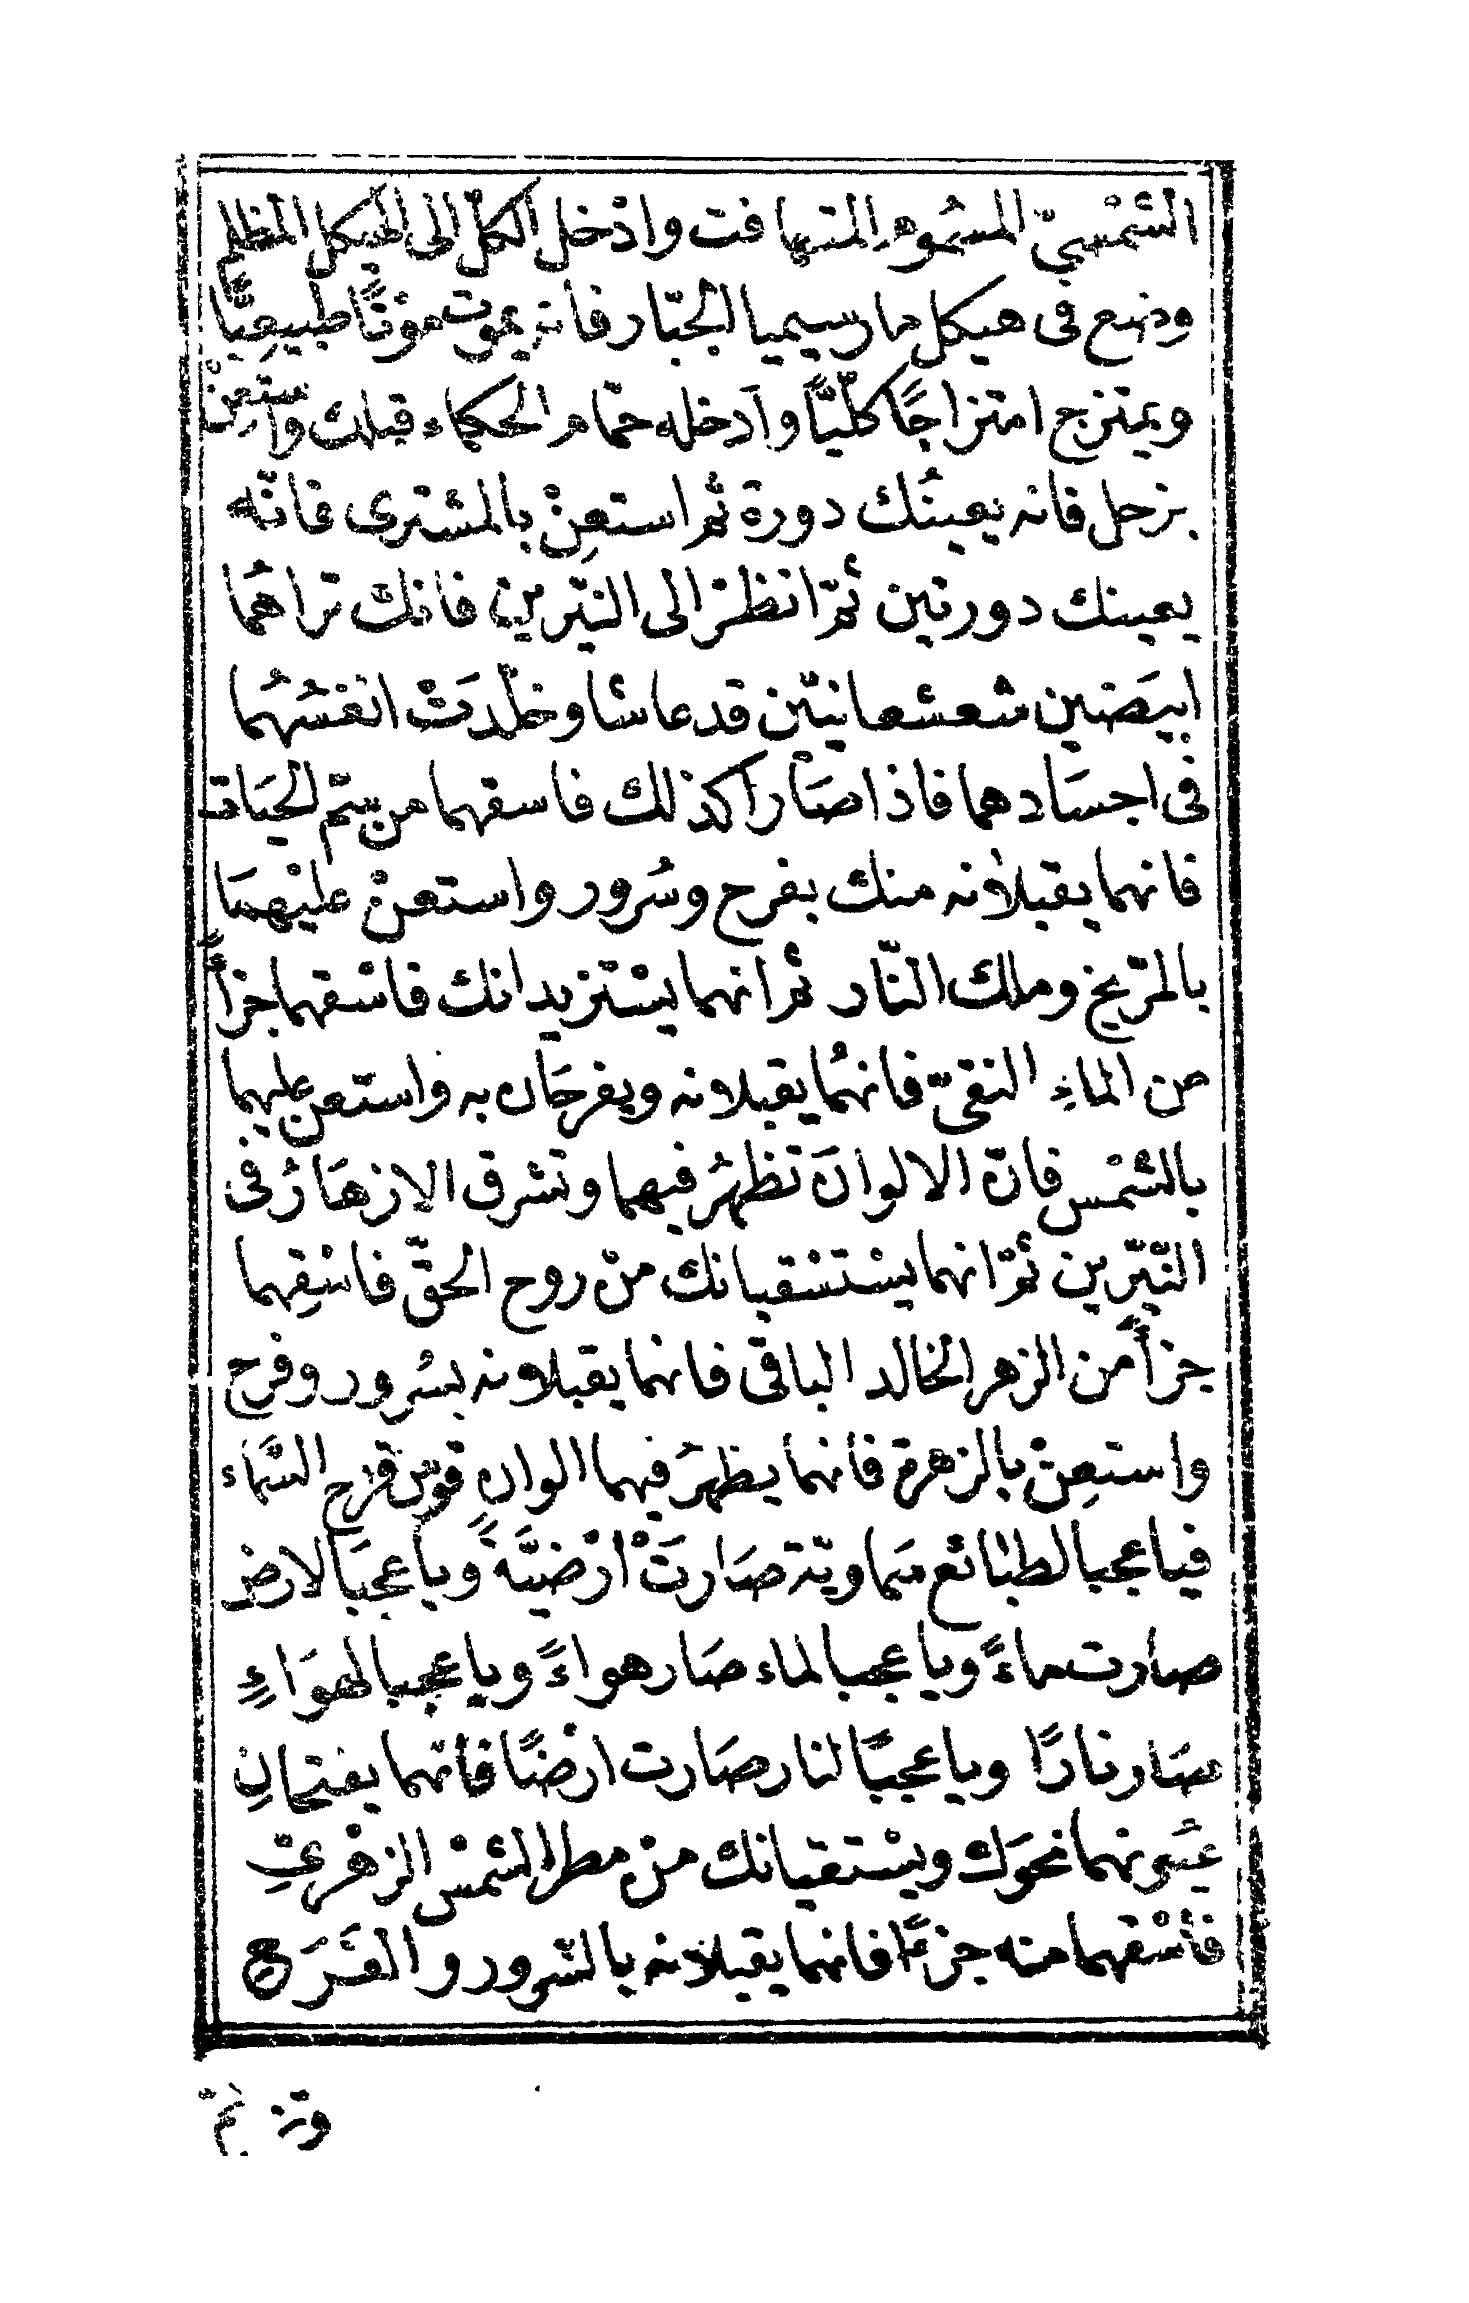 الشمْسيّ المسمُوم المتهافت وادْخل الكلّ الى الهيكل المظلم
وضع فى هيكل مارسيميا الجبّار فأنه يموت موْتًا طبيعيًّا
ويمتزج امتزاجًا كلّيًّا وأدخله حمّام الحكماء قبلك واستعِنْ
بزحل فانه يعينُك دورة ثم استعِنْ بالمشترى فانّه
يعينك دورتين ثمّ انظرْ الى النيّرين فانك تراهُما
ابيَضين شعشعانيّين قد عاشا وخلّدَتْ انفسُهُما
فى اجسَادهما فاذا صَارَا كذلك فاسقهما من سِتمّ الحيَات
فانهما يقبلانه منك بفرح وسُرور واستعنْ عليْهمَا
بالمرّيخ وملك النّار ثم انهما يسْتزيدانك فاسْقهما جزأً
من الماءِ النقىّ فانهُما يقبلانه ويفرحَان به واستعن عليهما
بالشمْس فانّ الالوانَ تظهرُ فيهما وتشرق الازهَارُ فى
النّيّرين ثمّ انهما يسْتسْقيانك منْ روح الحقّ فاسْقِهما
جزأً من الزهر الخالد الباقى فانهما يقبلانه بسُرور وفرح
واستعِنْ بالزهرة فأنهما يظهرُ فيهما الوان قوس قزح السّماء
فيا عجبا لطبائع سَماويّة صَارتَْ ارْضيَّةً ويا عجبَا لارض
صارت ماءً ويا عجبا لماء صَار هواءً ويا عجبا لهوَاءٍ
صَار نارًا ويا عجبًا لنار صَارت ارْضًا فأنهما يفتحانِ
عيُونهما نحوَك ويسْتقيانك منْ مطر الشمْس الزهْرىّ
فأسْقهما منه جزءًا فانهما يقبلانه بالسّرور والفَرَح
وتز نمّ